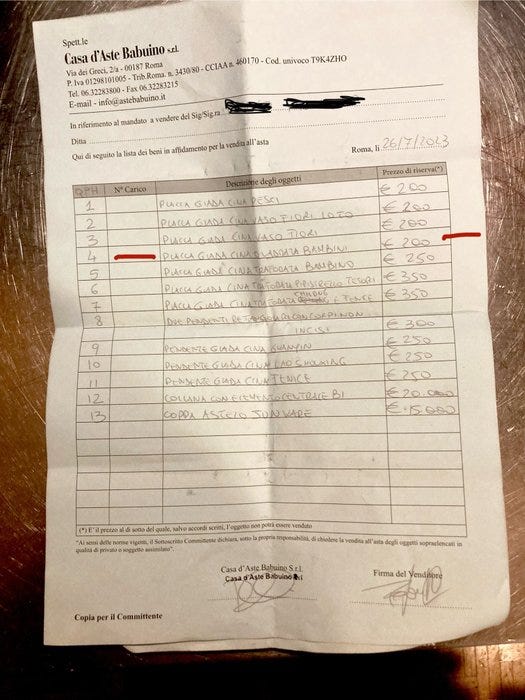 Spett.le
Casa d'Aste Babuino s.r.l.
Via dei Greci, 2/a - 00187 Roma
P. Iva 01298101005 - Trib.Roma. n. 3430/80 - CCIAA n. 460170 - Cod. univoco T9K4ZHO
Tel. 06.32283800 - Fax 06.32283215
E-mail - info@astebabuino.it
In riferimento al mandato a vendere del Sig/Sig.ra
Ditta
Qui di seguito la lista dei beni in affidamento per la vendita all'asta Roma, li 26/7/2023
N° Carico Descrizione degli oggetti Prezzo di riserva(*)
1 PLACCA GIADA CINA PESCI € 200
2 PLACCA GIADA CINA VASO FIORI LOTO € 200
3 PLACCA GIADA CINA VASO FIORI € 200
4 PLACCA GIADA CINA BAMBINI € 200
5 PLACCA GIADA CINA TRAFORATA BAMBINO € 250
6 PLACCA GIADA CINA TRAFORATA PIPISTRELLO TESORI € 350
7 PLACCA GIADA CINA TRAFORATA E FENICE € 350
8 DUE PENDENTI CON CORPI NON
INCISI € 300
9 PENDENTE GIADA CINA GUANYIN € 250
10 PENDENTE GIADA CINA € 250
11 PENDENTE GIADA CINA FENICE € 250
12 COLLANA CON ELEMENTO CENTRALE BI € 20.000
13 COPPA A STELO JUN WARE € 15.000
(*) E' il prezzo al di sotto del quale, salvo accordi scritti, l'oggetto non potrà essere venduto
"Ai sensi delle norme vigenti, il Sottoscritto Committente dichiara, sotto la propria responsabilità, di chiedere la vendita all'asta degli oggetti sopraelencati in
qualità di privato o soggetto assimilato".
Casa d'Aste Babuino S.r.l. Firma del Venditore
Casa d'Aste Babuino
Copia per il Committente